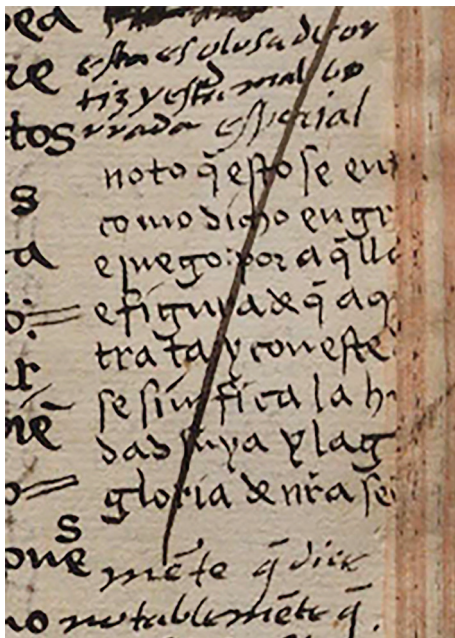 re
tos
s
ta
s
one
no
esta es glosa de or
tiz y esta mal bo
rrada esperial
noto q̄ esto se ent
como dicho en gr
e juego: por aq̄lla
e figura de q̄ aq
trata y con este
se sinifica la hu
dad suya y la g
gloria de nr̄a se
mēte q̄ dice
notablemēte q̄.